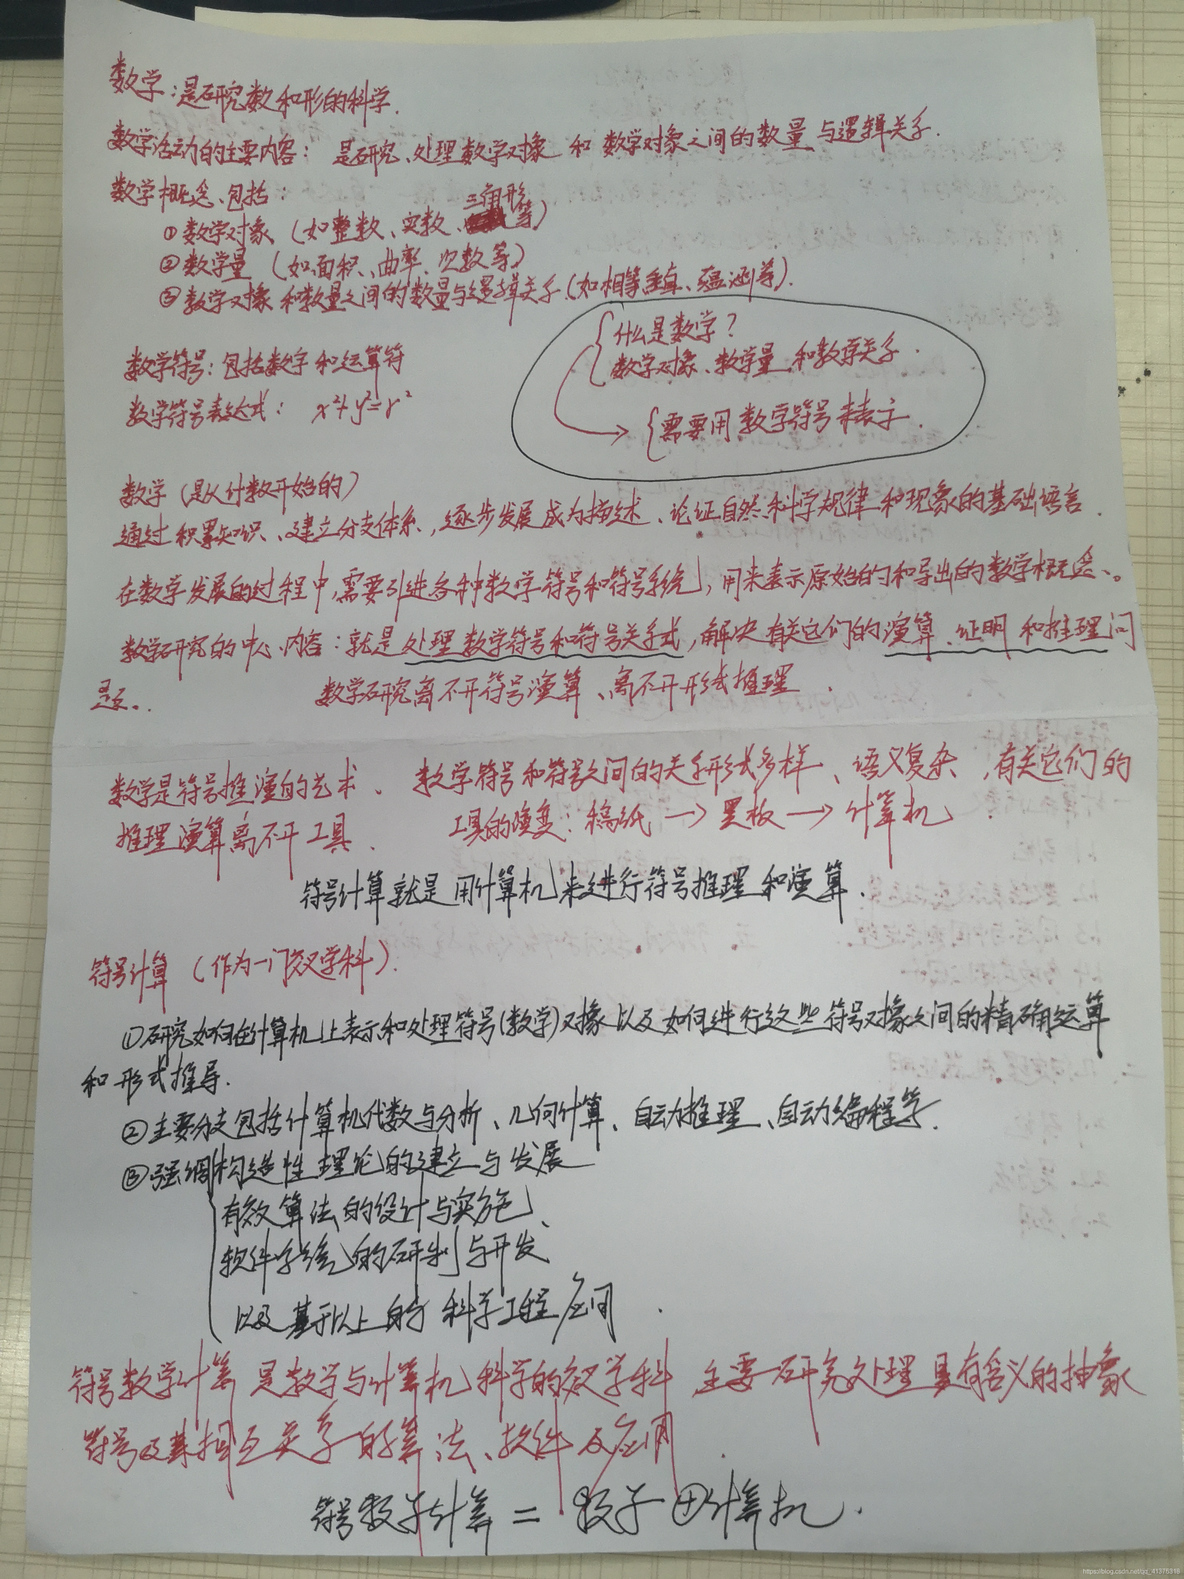 数学:是研究数和形的科学.
数学活动的主要内容: 是研究、处理数学对象 和 数学对象之间的数量与逻辑关系.
数学概念、包括:
①数学对象 (如整数、实数、三角形等)
②数学量 (如面积、曲率、次数等)
③数学对象和数量之间的数量与逻辑关系(如相等、垂直、蕴涵等).
什么是数学?
数学对象、数学量、和数学关系.
需要用数学符号来表示.
数学符号:包括数字和运算符
数学符号表达式: x²+y²=r²
数学 (是从计数开始的)
通过积累知识、建立分支体系、逐步发展成为描述、论证自然科学规律和现象的基础语言.
在数学发展的过程中,需要引进各种数学符号和符号系统,用来表示原始的和导出的数学概念、。
数学研究的中心内容:就是处理数学符号和符号关系式,解决有关它们的演算、证明和推理问
题。. 数学研究离不开符号演算、离不开形式推理.
数学是符号推演的艺术、 数学符号和符号之间的关系形式多样、语义复杂,有关它们的
推理演算离不开工具. 工具的演变:稿纸→黑板→计算机.
符号计算就是用计算机来进行符号推理和演算.
符号计算 (作为一门交叉学科).
①研究如何在计算机上表示和处理符号(数学)对象以及如何进行这些符号对象之间的精确运算
和形式推导.
②主要分支包括计算机代数与分析、几何计算、自动推理、自动编程等.
③强调构造性理论的建立与发展
有效算法的设计与实施、
软件系统的研制与开发
以及基于以上的科学工程应用.
符号数学计算是数学与计算机科学的交叉学科 主要研究处理具有含义的抽象
符号及其相互关系的算法、软件及应用.
符号数学计算 = 数学⊕计算机.
https://blog.csdn.net/qq_41375318